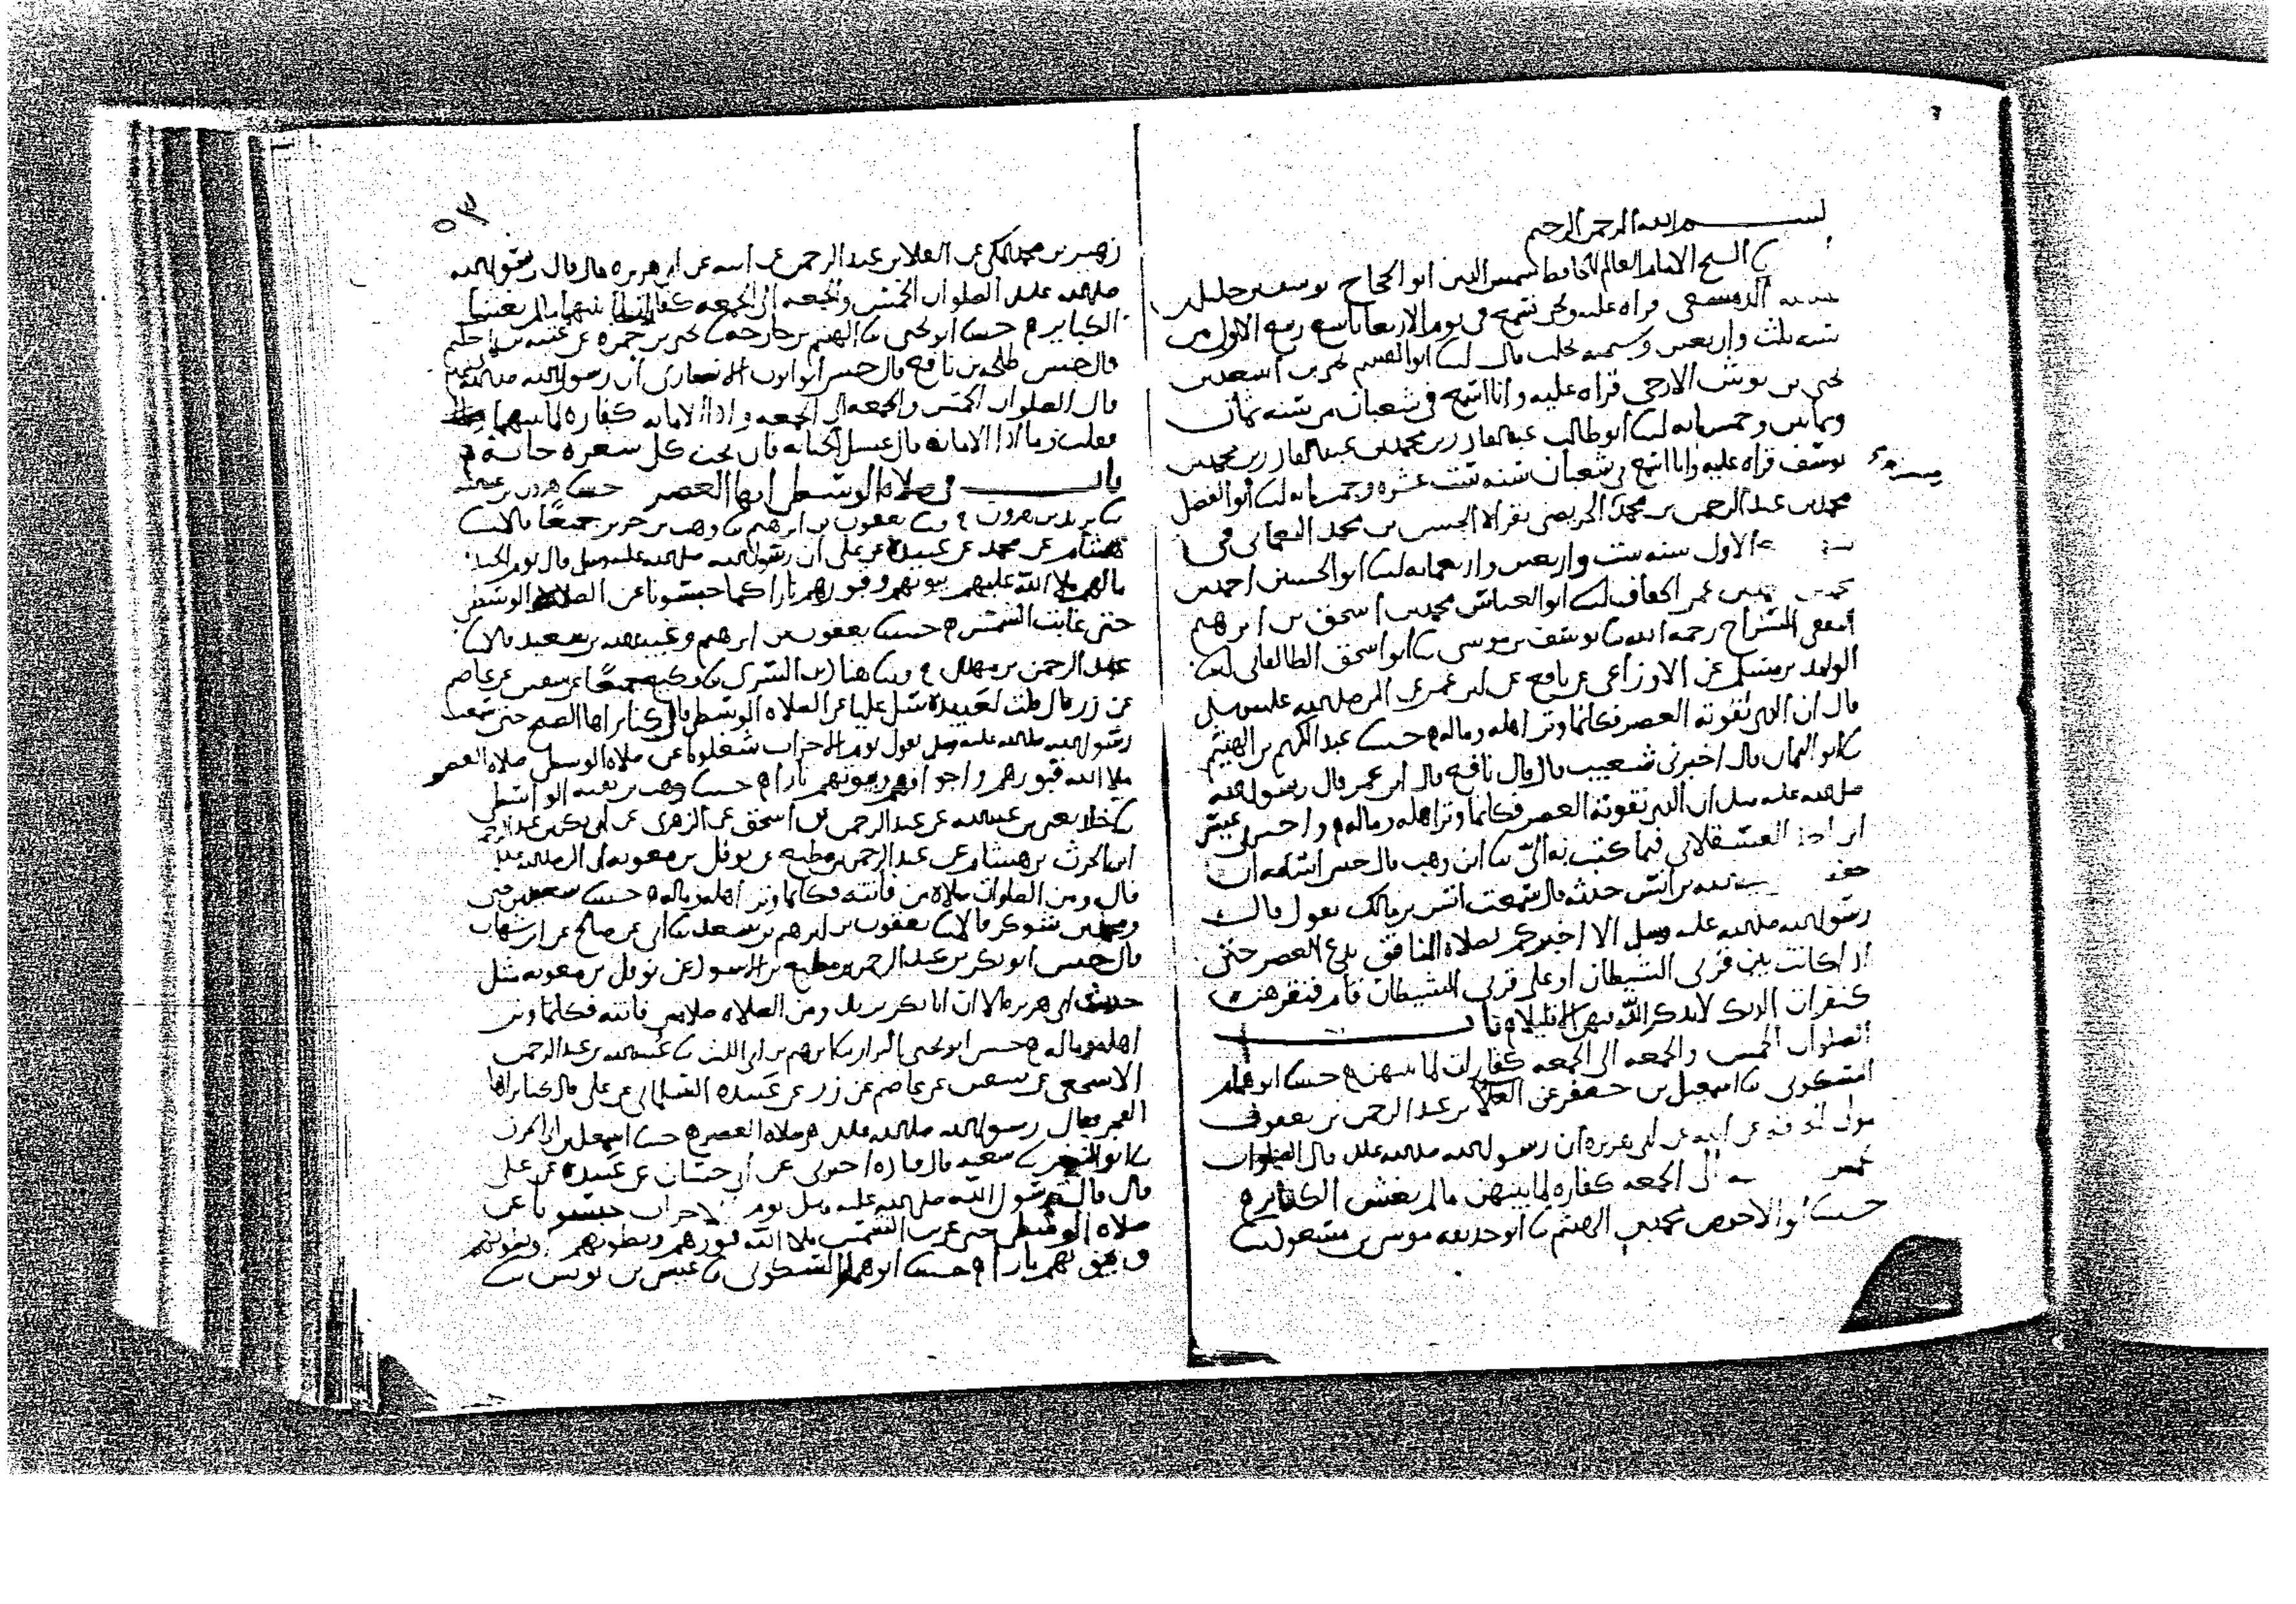 بسم الله الرحمن الرحيم
الشيخ الامام العالم الحافظ شمس الدين ابو الحجاج يوسف بن خليل بن
الدمشقي قراه عليه ونحن نسمع في يوم الاربعا تاسع ربيع الاول من
سنه ثلث واربعين وستميه بحلب قال ابنا ابو القسم يحيى بن اسعد بن
يحيى بن بوش الازجي قراه عليه وانا اسمع في شعبان من سنه ثمان
وثمانين وخمسمايه ابنا ابو طالب عبد القادر بن محمد بن عبد القادر بن محمد بن
يوسف قراه عليه وانا اسمع في شعبان سنه ست عشره وخمسمايه ابنا ابو الفضل
محمد بن عبد الرحمن بن محمد الحريصي بقراة الحسن بن محمد في
الاول سنه ست واربعين واربعمايه ابنا ابو الحسين احمد بن
محمد بن عمر الخفاف ابنا ابو العباس محمد بن اسحق بن ابرهيم
الثقفي السراج رحمه الله نا يوسف بن موسى نا ابو اسحق الطالقاني ابنا
الوليد بن مسلم عن الاوزاعي عن نافع عن ابن عمر عن النبي صلى الله عليه وسلم
قال ان الذي تفوته العصر فكانما وتر اهله وماله حدثنا عبد الكريم بن الهيثم
نا ابو اليمان قال اخبرني شعيب قال قال نافع قال ابن عمر قال رسول الله
صلى الله عليه وسلم ان الذي تفوته العصر فكانما وتر اهله وماله واخبرني عيسى
العسقلاني فيما كتب به الي نا ابن وهب قال اخبرني اسامه ان
حفص بن عبيد الله بن انس حدثه قال سمعت انس بن مالك يقول قال
رسول الله صلى الله عليه وسلم الا اخبركم بصلاة المنافق يدع العصر حتى
اذا كانت بين قرني الشيطان او على قرني الشيطان قام فنقرهن
كنقرات الديك لا يذكر الله فيهن الا قليلا باب
الصلوات الخمس والجمعه الى الجمعه كفارات لما بينهن حدثنا ابو همام
السكوني نا اسمعيل بن جعفر عن العلا بن عبد الرحمن بن يعقوب
مولى الحرقه عن ابيه عن ابي هريره ان رسول الله صلى الله عليه قال الصلوات
الخمس الى الجمعه كفاره لما بينهن ما لم يغش الكباير
حدثنا ابو الاحوص محمد بن الهيثم نا ابو حذيفه موسى بن مسعود نا
٥٣
زهير بن محمد المكي عن العلا بن عبد الرحمن عن ابيه عن ابي هريره قال قال رسول الله
صلى الله عليه الصلوات الخمس والجمعه الى الجمعه كفارات لما بينهما ما لم يغشا
الكباير حدثنا ابو يحيى نا الهيثم بن خارجه نا يحيى بن حمزه عن عتبه بن ابي حكيم
قال حدثني طلحه بن نافع قال حدثني ابو ايوب الانصاري ان رسول الله صلى الله
قال الصلوات الخمس والجمعه الى الجمعه واداا الامانه كفاره لما بينهما
فقلت وما اداا الامانه قال غسل الجنابه فان تحت كل شعره جنابة
باب في صلاة الوسطى انها العصر حدثنا هرون بن عبد الله
نا يزيد بن هرون ح ونا يعقوب بن ابرهيم نا وهب بن جرير جميعا قالا نا
هشام عن محمد عن عبيده عن علي ان رسول الله صلى الله عليه وسلم قال يوم الخندق
ما لهم ملا الله عليهم بيوتهم وقبورهم نارا كما حبسونا عن الصلاة الوسطى
حتى غابت الشمس حدثنا يعقوب بن ابرهيم وعبيد الله بن سعيد قالا نا
عبد الرحمن بن مهدي ح ونا هناد بن السري نا وكيع جميعا عن سفين عن عاصم
عن زر قال قلت لعبيدة سل عليا عن الصلاه الوسطى قال كنا نراها الصبح حتى سمعت
رسول الله صلى الله عليه وسلم يقول يوم الاحزاب شغلونا عن صلاه الوسطى صلاه العصر
ملا الله قبورهم واجوافهم وبيوتهم نارا حدثنا وهب بن بقيه الواسطي
نا خالد يعني بن عبد الله عن عبد الرحمن بن اسحق عن الزهري عن ابي بكر بن عبد الرحمن
ابن الحرث بن هشام عن عبد الرحمن بن مطيع عن نوفل بن معويه ان النبي صلى الله عليه
قال ومن الصلوات صلاه من فاتته فكانما وتر اهله وماله حدثنا
ومجاهد بن شوكر قالا نا يعقوب بن ابرهيم بن سعد نا ابي عن صالح عن ابن شهاب
قال حدثني ابو بكر بن عبد الرحمن بن مطيع بن الاسود عن نوفل بن معويه مثل
حديث ابي هريره الا ان ابا بكر يزيد ومن الصلاه صلاه من فاتته فكانما وتر
اهله وماله حدثنا ابو يحيى البزار نا ابرهيم بن ابي الليث نا عبيد الله بن عبد الرحمن
الاشجعي عن سفين عن عاصم عن زر عن عبيده السلماني عن علي قال كنا نراها
الفجر فقال رسول الله صلى الله عليه هي صلاه العصر حدثنا اسمعيل بن ابي الحرث
نا ابو النضر نا سعيد قال قتاده اخبرني عن ابي حسان عن عبيدة عن علي
قال قال رسول الله صلى الله عليه وسلم يوم الاحزاب حبسونا عن
صلاه الوسطى حتى غربت الشمس ملا الله قبورهم وبطونهم وبيوتهم
نارا حدثنا ابو همام السكوني نا عيسى بن يونس نا